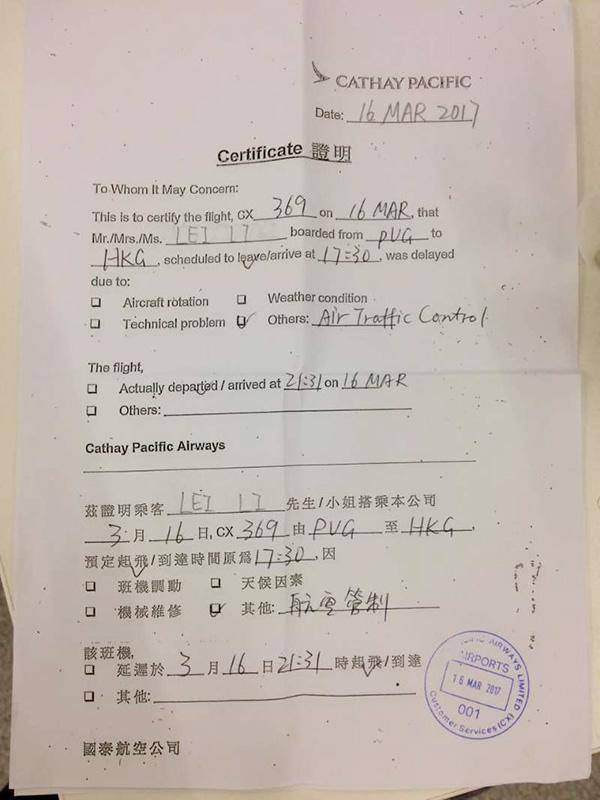 CATHAY PACIFIC
Date: 16 MAR 2017
Certificate 證明
To Whom It May Concern:
This is to certify the flight, CX 369 on 16 MAR, that
Mr./Mrs./Ms. LEI LI boarded from PVG to
HKG, scheduled to leave/arrive at 17:30, was delayed
due to:
Aircraft rotation Weather condition
Technical problem Others: Air Traffic Control
The flight,
Actually departed / arrived at 21:31 on 16 MAR
Others:
Cathay Pacific Airways
茲證明乘客 LEI LI 先生/小姐搭乘本公司
3 月 16 日, CX 369 由 PVG 至 HKG,
預定起飛/到達時間原爲 17:30, 因
班機調動 天候因素
機械維修 其他: 航空管制
該班機,
延遲於 3 月 16 日 21:31 時起飛/到達
其他:
國泰航空公司
AIRWAYS LIMITED
AIRPORTS
16 MAR 2017
001
Customer Services (CX)